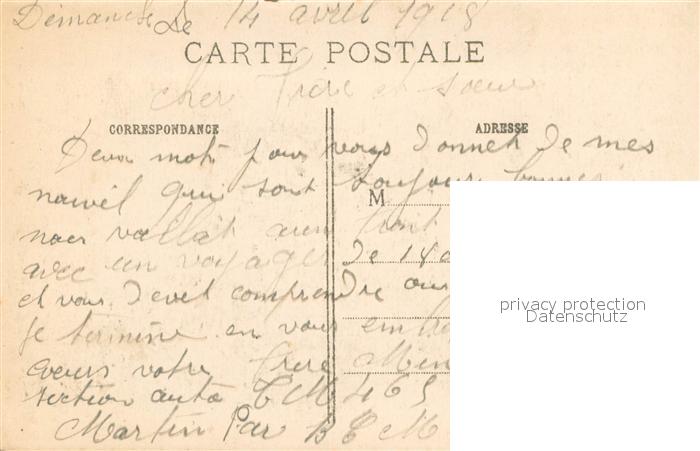 Dimanche Le 14 avril 1918
CARTE POSTALE
cher Frère et sœur
CORRESPONDANCE
ADRESSE
Deux mots pour vous donner de mes
nouvel qui sont toujour bonnes
M
nous voilat au front
avec un voyage de 14
et vous devet comprendre
Je termine en vous
votre frère
section auto T M 465
Martin Par B C M
privacy protection
Datenschutz